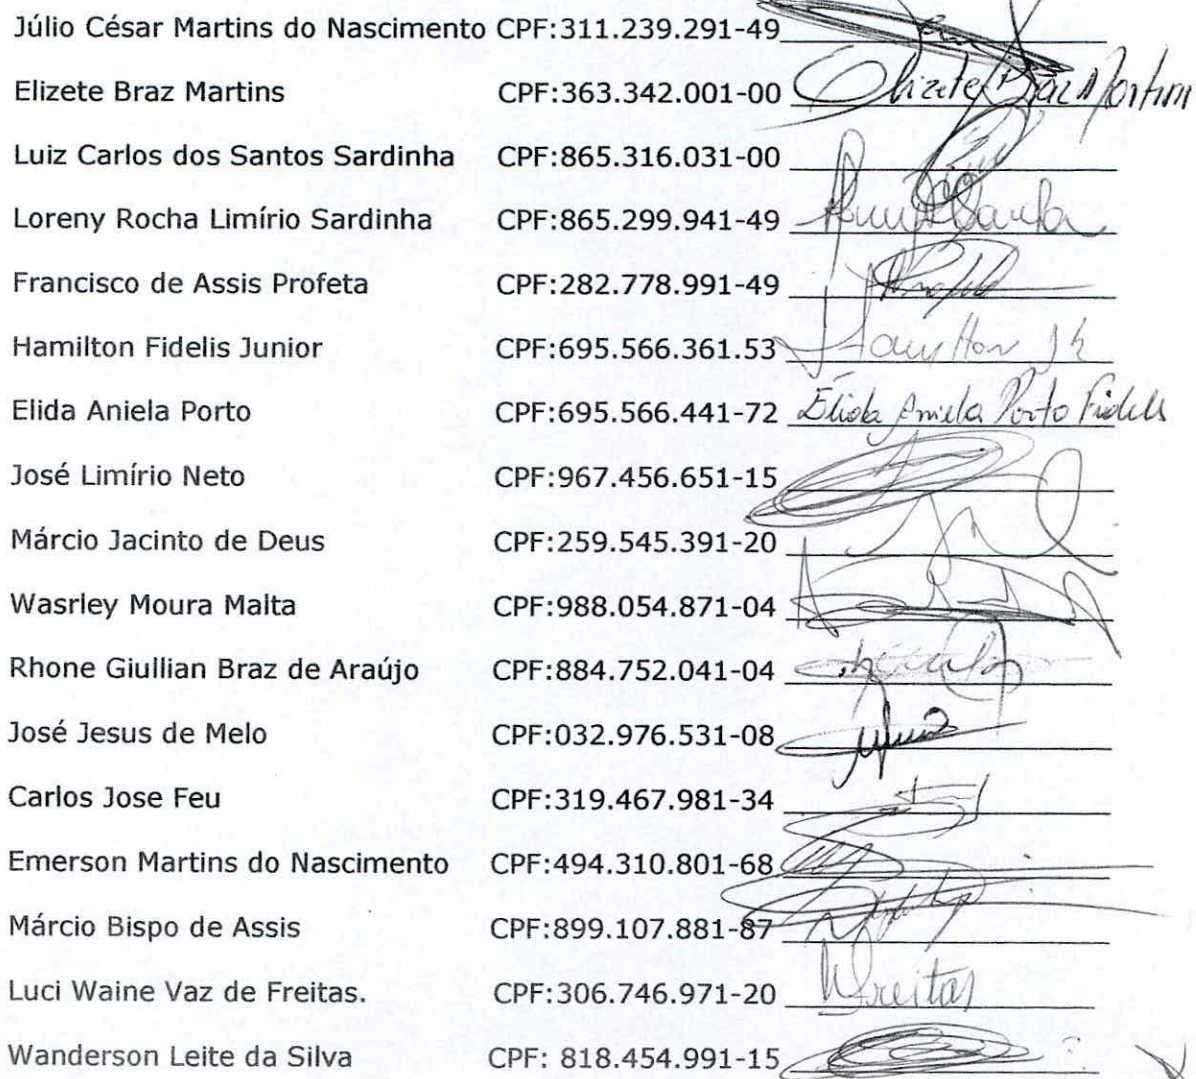 Júlio César Martins do Nascimento CPF:311.239.291-49
Elizete Braz Martins CPF:363.342.001-00 Elizete Braz Martins
Luiz Carlos dos Santos Sardinha CPF:865.316.031-00
Loreny Rocha Limírio Sardinha CPF:865.299.941-49
Francisco de Assis Profeta CPF:282.778.991-49
Hamilton Fidelis Junior CPF:695.566.361.53 Hamilton Jr
Elida Aniela Porto CPF:695.566.441-72 Elida Aniela Porto Fidelis
José Limírio Neto CPF:967.456.651-15
Márcio Jacinto de Deus CPF:259.545.391-20
Wasrley Moura Malta CPF:988.054.871-04
Rhone Giullian Braz de Araújo CPF:884.752.041-04
José Jesus de Melo CPF:032.976.531-08
Carlos Jose Feu CPF:319.467.981-34
Emerson Martins do Nascimento CPF:494.310.801-68
Márcio Bispo de Assis CPF:899.107.881-87
Luci Waine Vaz de Freitas. CPF:306.746.971-20 Freitas
Wanderson Leite da Silva CPF: 818.454.991-15